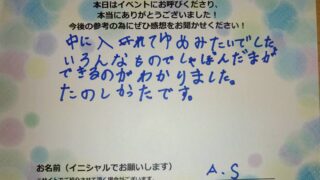 本日はイベントにお呼びくださり、
本当にありがとうございました！
今後の参考の為にぜひ感想をお聞かせください！
中に入れてゆめみたいでした。
いろんなものでしゃぼんだまが
できるのがわかりました。
たのしかったです。
お名前（イニシャルでお願いします）
A.S